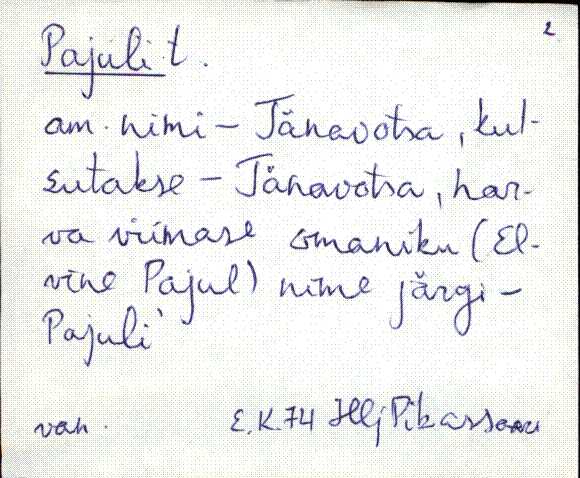 2
Pajuli t.
am. nimi – Tänavotsa, kut-
sutakse – Tänavotsa, har-
va viimase omaniku (El-
vine Pajul) nime järgi –
Pajuli`
van. E.K.74 Hlj Pikassaar